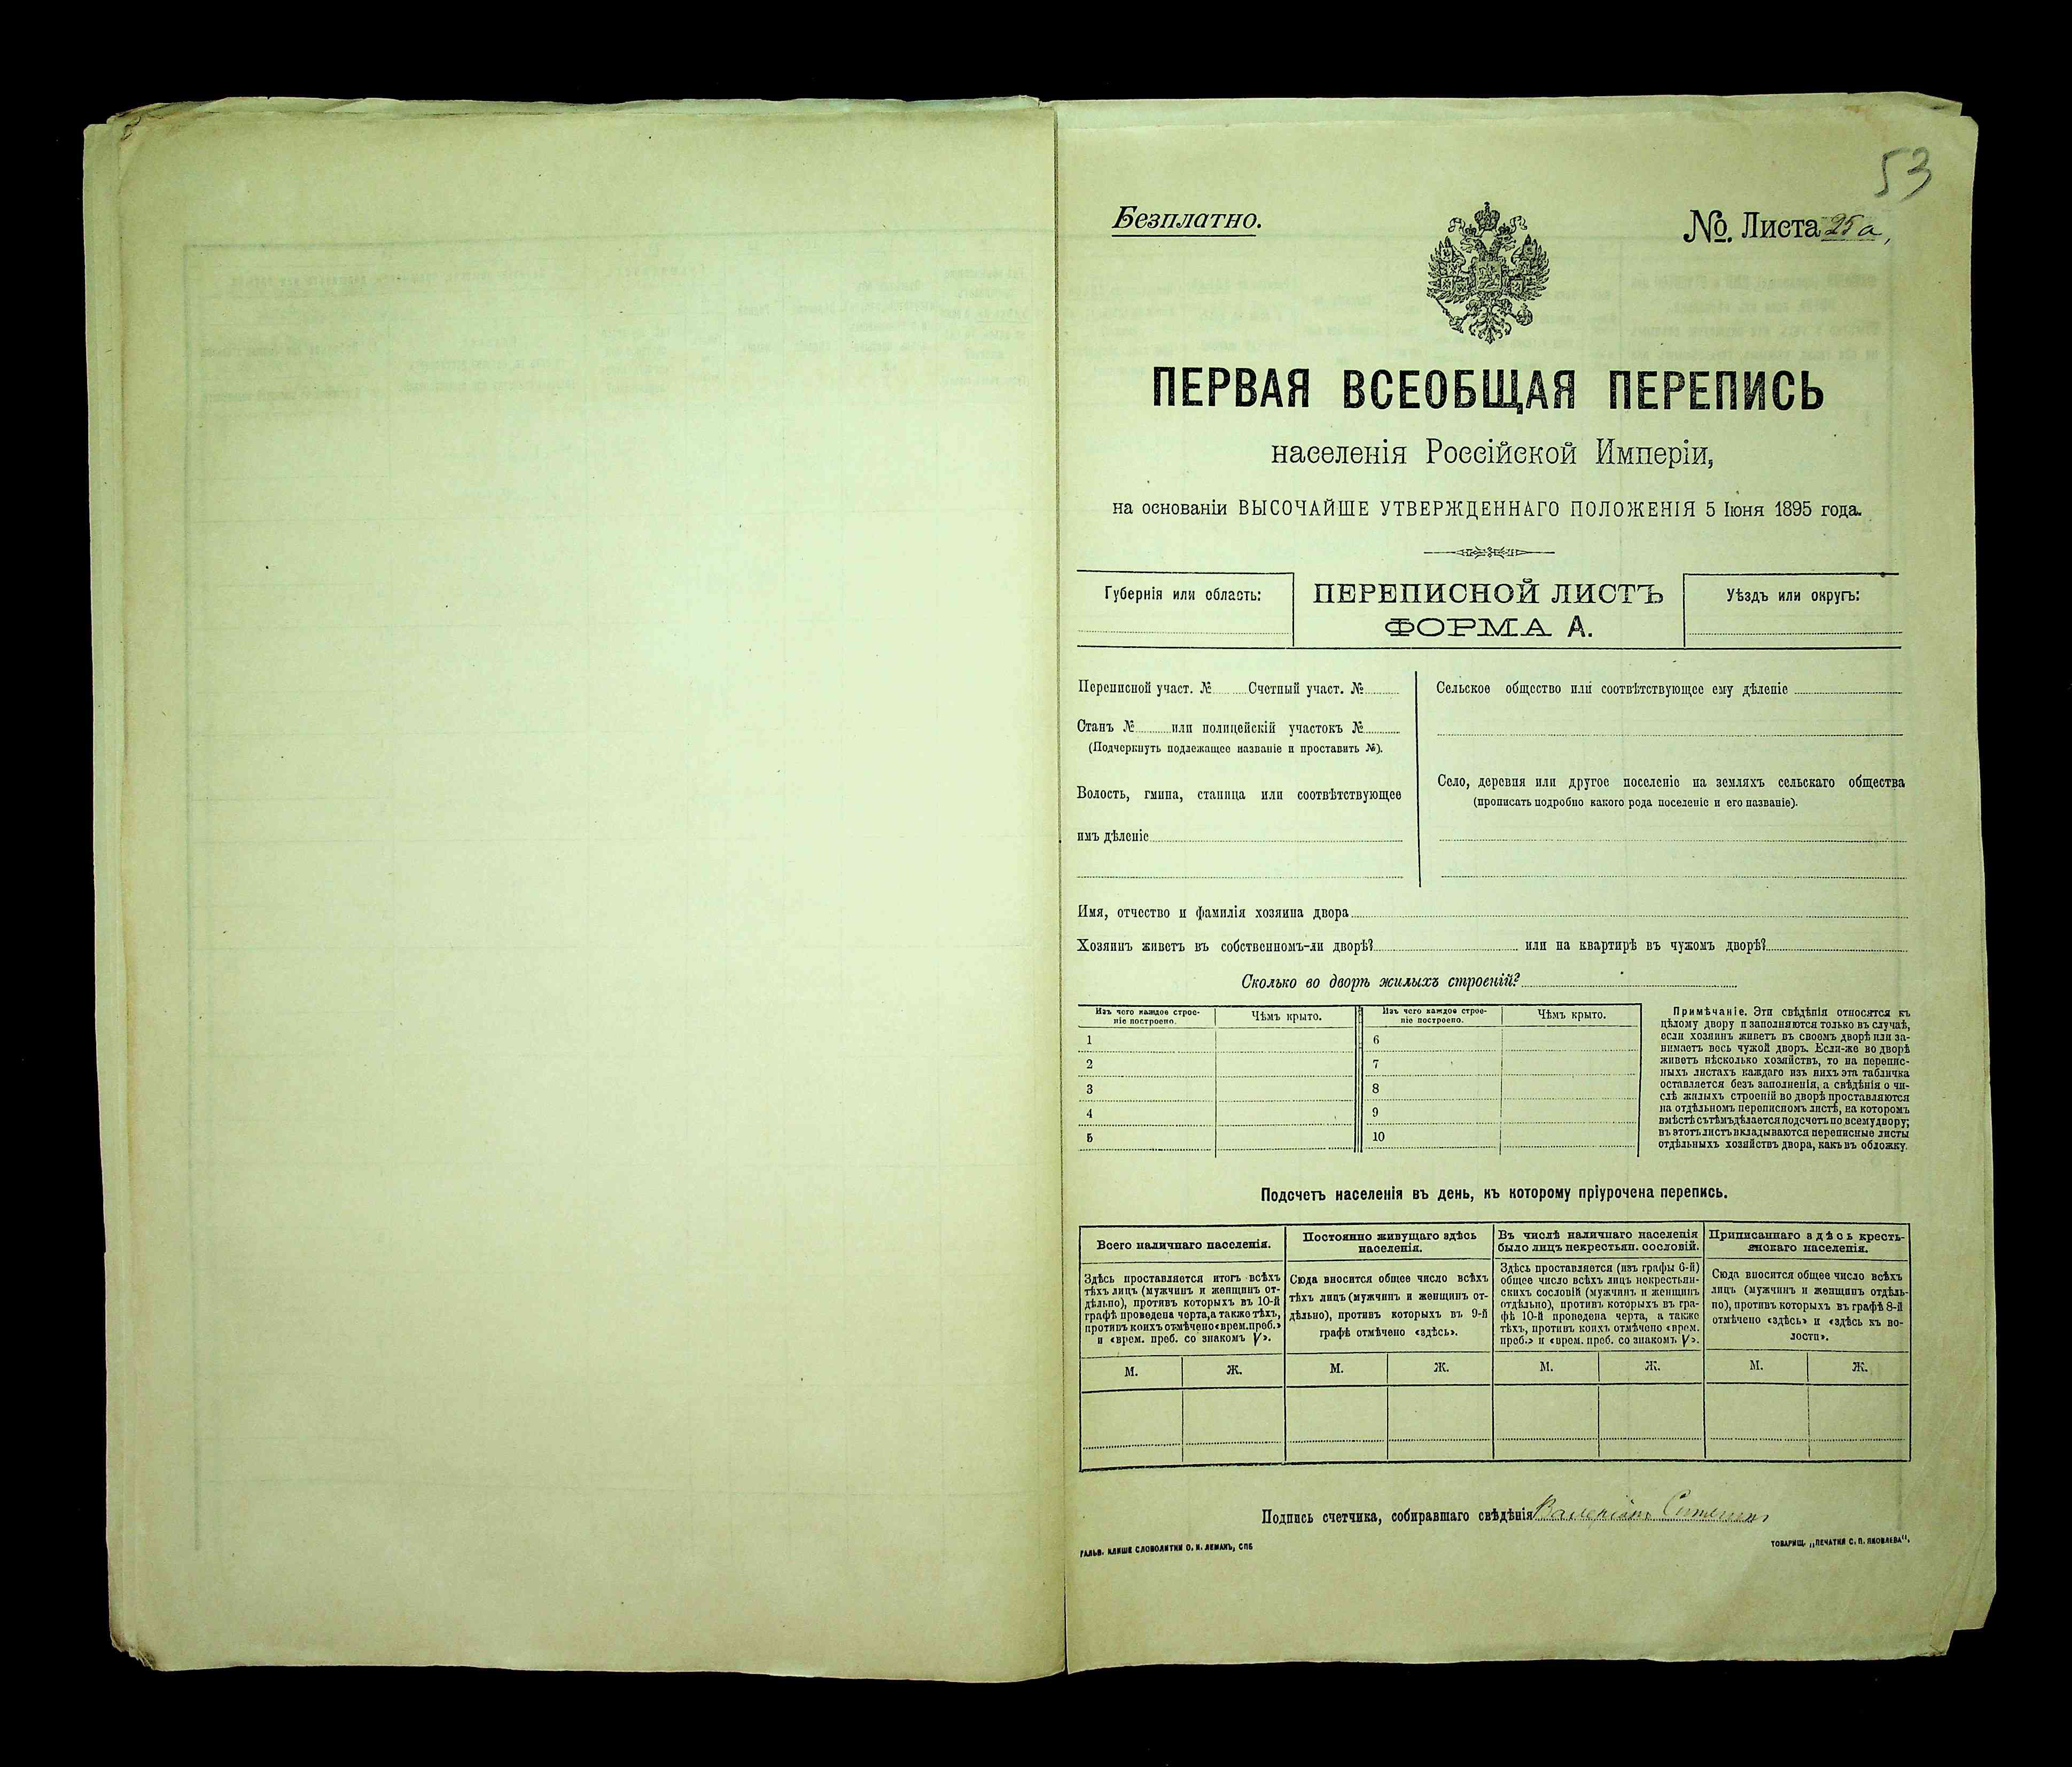 53
Безплатно.
№. Листа 25 а,
ПЕРВАЯ ВСЕОБЩАЯ ПЕРЕПИСЬ
населенія Россійской Имперіи,
на основаніи ВЫСОЧАЙШЕ УТВЕРЖДЕННАГО ПОЛОЖЕНІЯ 5 Іюня 1895 года.
Губернія или область:
ПЕРЕПИСНОЙ ЛИСТЪ
ФОРМА А.
Уѣздъ или округъ:
Переписной участ. № Счетный участ. №
Станъ № или полицейскій участокъ №
(Подчеркнуть подлежащее названіе и проставить №).
Волость, гмина, станица или соотвѣтствующее
имъ дѣленіе
Сельское общество или соотвѣтствующее ему дѣленіе
Село, деревня или другое поселеніе на земляхъ сельскаго общества
(прописать подробно какого рода поселеніе и его названіе).
Имя, отчество и фамилія хозяина двора
Хозяинъ живетъ въ собственномъ-ли дворѣ? или на квартирѣ въ чужомъ дворѣ?
Сколько во дворѣ жилыхъ строеній?
Изъ чего каждое строе-
ніе построено.
Чѣмъ крыто.
Изъ чего каждое строе-
ніе построено.
Чѣмъ крыто.
1
2
3
4
5
6
7
8
9
10
Примѣчаніе. Эти свѣдѣнія относятся къ
цѣлому двору и заполняются только въ случаѣ,
если хозяинъ живетъ въ своемъ дворѣ или за-
нимаетъ весь чужой дворъ. Если-же во дворѣ
живетъ нѣсколько хозяйствъ, то на перепис-
ныхъ листахъ каждаго изъ нихъ эта табличка
оставляется безъ заполненія, а свѣдѣнія о чи-
слѣ жилыхъ строеній во дворѣ проставляются
на отдѣльномъ переписномъ листѣ, на которомъ
вмѣстѣ съ тѣмъ дѣлается подсчетъ по всему двору;
въ этотъ листъ вкладываются переписные листы
отдѣльныхъ хозяйствъ двора, какъ въ обложку.
Подсчетъ населенія въ день, къ которому пріурочена перепись.
Всего наличнаго населенія.
Здѣсь проставляется итогъ всѣхъ
тѣхъ лицъ (мужчинъ и женщинъ от-
дѣльно), противъ которыхъ въ 10-й
графѣ проведена черта, а также тѣхъ,
противъ коихъ отмѣчено «врем. преб.»
и «врем. преб. со знакомъ V».
Постоянно живущаго здѣсь
населенія.
Сюда вносится общее число всѣхъ
тѣхъ лицъ (мужчинъ и женщинъ от-
дѣльно), противъ которыхъ въ 9-й
графѣ отмѣчено «здѣсь».
Въ числѣ наличнаго населенія
было лицъ некрестьян. сословій.
Здѣсь проставляется (изъ графы 6-й)
общее число всѣхъ лицъ некрестьян-
скихъ сословій (мужчинъ и женщинъ
отдѣльно), противъ которыхъ въ гра-
фѣ 10-й проведена черта, а также
тѣхъ, противъ коихъ отмѣчено «врем.
преб.» и «врем. преб. со знакомъ V».
Приписаннаго здѣсь кресть-
янскаго населенія.
Сюда вносится общее число всѣхъ
лицъ (мужчинъ и женщинъ отдѣль-
но), противъ которыхъ въ графѣ 8-й
отмѣчено «здѣсь» и «здѣсь къ во-
лости».
М. Ж. М. Ж. М. Ж. М. Ж.
Подпись счетчика, собиравшаго свѣдѣнія Валеріанъ
ГАЛЬВ. КЛИШЕ СЛОВОЛИТНИ О. И. ЛЕМАНЪ, СПБ
ТОВАРИЩ. „ПЕЧАТНИ С. П. ЯКОВЛЕВА".